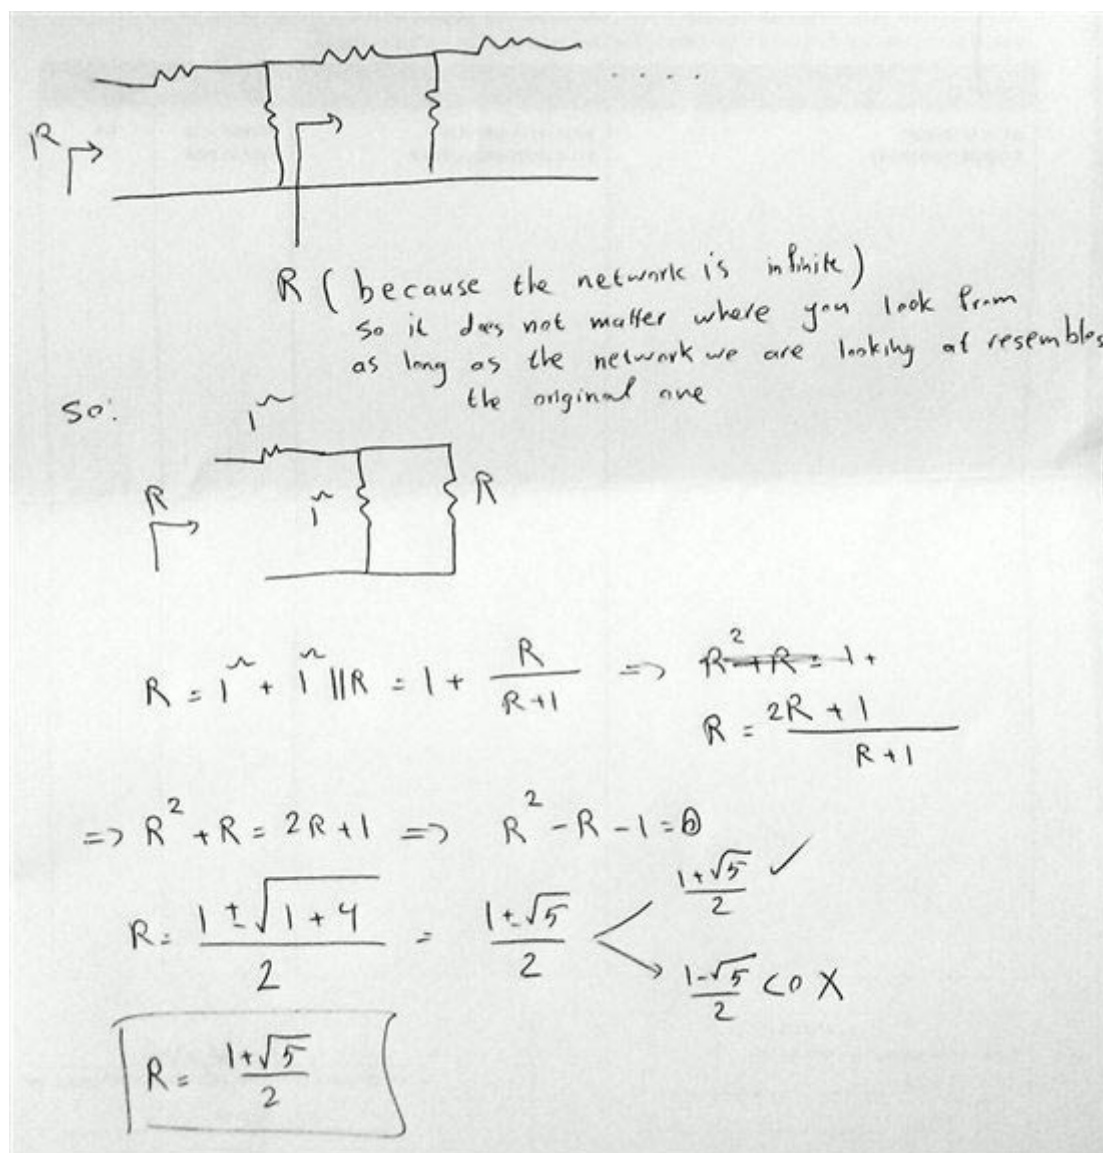 R
R ( because the network is infinite)
so it does not matter where you look from
as long as the network we are looking at resembles
the original one
So:
1
R
1
R
R = 1 + 1 || R = 1 + R / R+1 => R² + R = 1 +
R = 2R + 1 / R + 1
=> R² + R = 2R + 1 => R² - R - 1 = 0
R = 1 ± √1 + 4 / 2 = 1 ± √5 / 2
1 + √5 / 2 ✓
1 - √5 / 2 < 0 X
R = 1 + √5 / 2